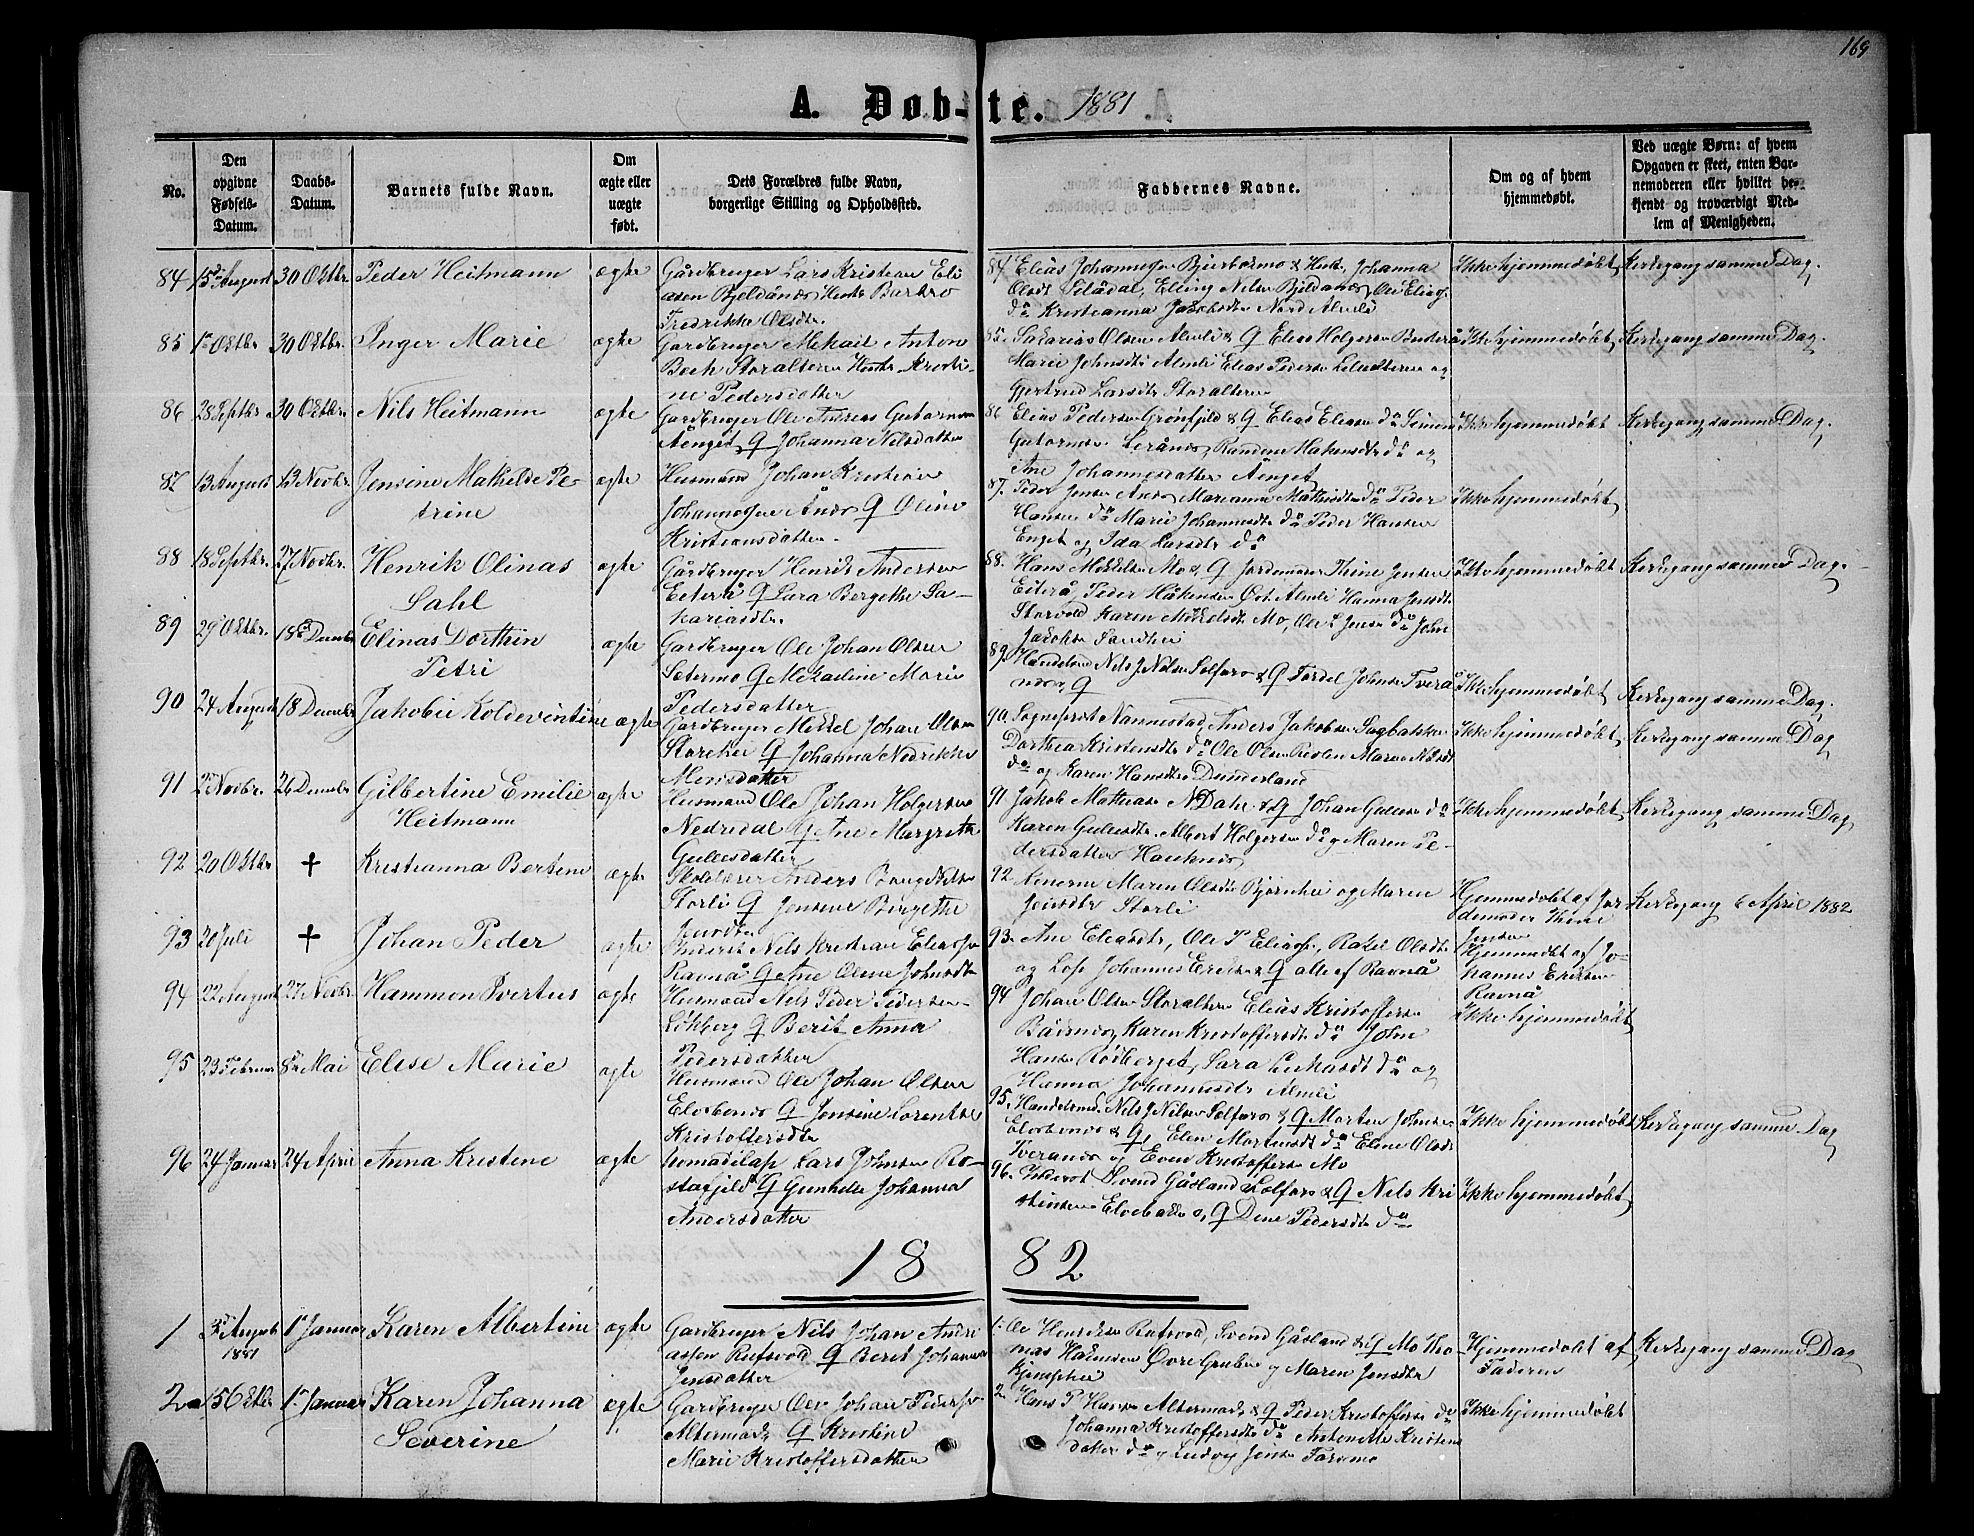 169
A. Døb-te. 1881
No.
Den opgivne Fødsels-Datum.
Daabs-Datum.
Barnets fulde Navn.
Om ægte eller uægte født.
Dets Forældres fulde Navn, borgerlige Stilling og Opholdssted.
Faddernes Navne.
Om og af hvem hjemmedøbt.
Ved uægte Børn: af hvem Opgaven er skeet, enten Barnemoderen eller hvilket bekjendt og troværdigt Medlem af Menigheden.
84 15de August 30 Oktbr. Peder Heitmann ægte Gårdbruger Lars Kristian Eli
asen Bjeldånes Hustr Barbro
Fredrikke Olsdtr.
84. Elias Johannesen Bjerbermo & Hust. Johanna
Olsdtr Eliasen, Elling Nilsen Bjeldånes, Ole Elias.
do Kristianna Jakobsdtr Nord Almli
Ikke hjemmedøbt Kirkegang samme Dag.
85 1ste Oktbr 30 Oktbr. Inger Marie ægte Gardbruger Mekail Anton
Bech Storalteren Hustr. Kristi-
ne Pedersdatter
85. Sakarias Olsen Almli & Q Elias Holgersen
Marie Johnsdtr Almli Elias Pedersen Lillealteren og
Gjertrud Larsdtr Storalteren
Ikke hjemmedøbt Kirkegang samme Dag.
86 28 Septbr. 30 Oktbr. Nils Heitmann ægte Gardbruger Ole Andreas Gutormsen
Aenget Q Johanna Nilsdatter
86 Elias Pedersen Grønfjeld & Q Elias Eliasen do Simon
Gutormsen Lerånes Randine Hakensdtr do og
Ane Johannesdatter Aenget
Ikke hjemmedøbt Kirkegang samme Dag.
87 13 August 13 Novbr. Jensine Mathilde Pe-
trine
ægte Husmand Johan Kristian
Johannesen Ånes Q Oline
Kristiansdatter.
87. Peder Jensen Ånes Marianne Mathisdtr do Peder
Hansen do Marie Johannesdtr do Peder Hansen
Enget og Ida Larsdtr do
Ikke hjemmedøbt
88 18 Septbr. 27 Novbr. Henrik Olinas
Dahl
ægte Gårdbruger Henrik Andersen
Eiterå Q Sara Bergethe Sa-
kariasdtr.
88. Hans Mikkelsen Mo & Q Jordemoder Thine Jensen
Eiterå, Peder Håkensen Øst. Almli Hanna Jensdtr
Storvold Karen Mikkelsdtr Mo, Ole L Jensen do John
Jakobsen Sandhei
Ikke hjemmedøbt Kirkegang samme Dag.
89 29 Oktbr. 18de Decembr Elinas Dorthin
Petri
ægte Gardbruger Ole Johan Olsen
Setermo Q Mekaline Marie
Pedersdatter
89. Handelsm Nils J Nilsen Solfors & Q Tordel Johnsen Tverå
nes & Q
Ikke hjemmedøbt Kirkegang samme Dag.
90 24 August 18 Decembr Jakobie Koldevintine ægte Gardbruger Mikkel Johan Olsen
Storeker Q Johanna Nedrikke
Monsdatter
90. Sogneprest Nannestad, Anders Jakobsen Sagbakken
Dorthea Kristensdtr do Ole Olsen Maren Nilsdtr
do og Karen Hansdtr Dunderland
Ikke hjemmedøbt Kirkegang samme Dag
91 2 Novbr. 26 Decembr Gilbertine Emilie
Heitmann
ægte Husmand Ole Johan Holgersen
Nedredal Q Ane Margrethe
Gullesdatter
91 Jakob Mathiasen N Dahl & Q Johan Gullesen do
Karen Gullesdtr. Albert Holgersen do og Maren Pe-
dersdatter Hauknes
Ikke hjemmedøbt Kirkegang samme Dag
92 20 Oktbr † Kristianna Bertine ægte Skolelærer Anders Bang Nilsen
Storli Q Jensine Bergethe
Jensdtr
92 Konerne Maren Olsdtr Bjørnhei og Maren
Jensdtr Storli
Hjemmedøbt af Jor
demoder Thine
Jensen
Kirkegang 6 April 1882
93 20 Juli † Johan Peder ægte Inderst Nils Kristian Eliasen
Ravnå Q Ane Oline Johnsdtr
93. Ane Eliasdtr, Ole P Eliasen, Rakel Olsdtr
og Lap Johannes Eriksen & Q alle af Ravnå
Hjemmedøbt af Jo-
hannes Eriksen
Ravnå
94 22 August 27 Novbr. Hammon Ivertus ægte Husmand Nils Peder Pedersen
Løkberg Q Berit Anna
Pedersdatter
94 Johan Olsen Storalteren Elias Kristoffersen
Båsmo Karen Kristoffersdtr do John
Hansen Rødberget, Sara Lukasdtr do og
Hanna Johannesdtr Almli
Ikke hjemmedøbt
95 23 Februar 8de Mai Elise Marie ægte Husmand Ole Johan Olsen
Elvebonden Q Jensine Lorentse
Kristoffersdtr
95. Handelsmd. Nils J Nilsen Solfors & Q Morten Johnsen
Elvebonden & Q, Elen Mortensdtr do Eline Olsdtr
Tverånes og Even Kristoffersen Mo
Ikke hjemmedøbt Kirkegang samme Dag
96 24 Januar 24 April Anna Kristine ægte Nomadelap Lars Johnsen Ro-
stafjeld Q Gunhilde Johanna
Andersdatter
96. Inderst Svend Gåsland Solfors & Q Nils Kri
stensen Elvebakken, Q Dene Pedersdtr do
Ikke hjemmedøbt
18 82
1 3de August 1881 1 Januar Karen Albertine ægte Gardbruger Nils Johan Andri
assen Rufsvold Q Berit Johanna
Jensdatter
1. Ole Henriksen Rufsvold, Svend Gåsland & Q Mo Tho
mas Halvorsen Øvre Gruben og Maren Jensdtr
Hjemmedøbt af
Faderen
Kirkegang samme Dag
2 15 Oktbr 1 Januar Karen Johanna
Severine
ægte Gardbruger Ole Johan Pedersen
Altermark Q Kristine
Marie Kristoffersdatter
2. Hans P Hansen Altermark & Q Peder Kristoffersen do
Johanna Kristoffersdtr do Antonette Kristens
datter do og Ludvig Jensen
Ikke hjemmedøbt